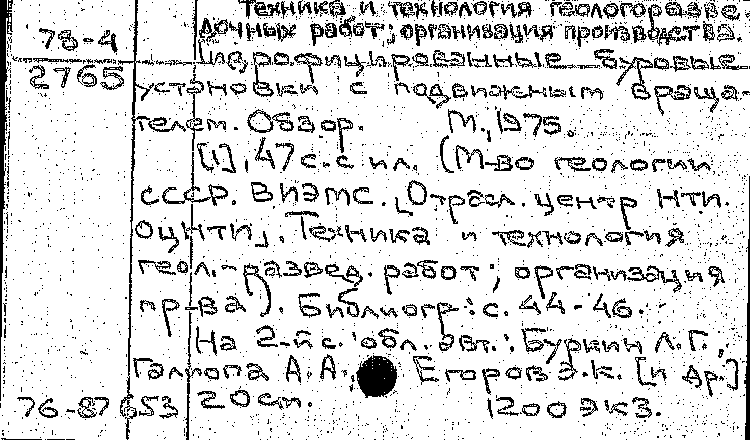 Техника и технология геологоразве
78-4 дочных работ; организация производства.
Цифрофицированные буровые
2765 установки с подвижным враща-
телем. Обзор. М., 1975.
[1], 47 с. с ил. (М-во геологии
СССР. ВИЭМС. [Отрасл. центр НТИ.
ОЦНТИ]. Техника и технология
геол.-развед. работ; организация
пр-ва). Библиогр.: с. 44-46.
На 2-й с. обл. авт.: Буркин Л.Г.,
Галиопа А.А., Егоров Э.К. [и др.]
76-87653 20 см. 1200 экз.